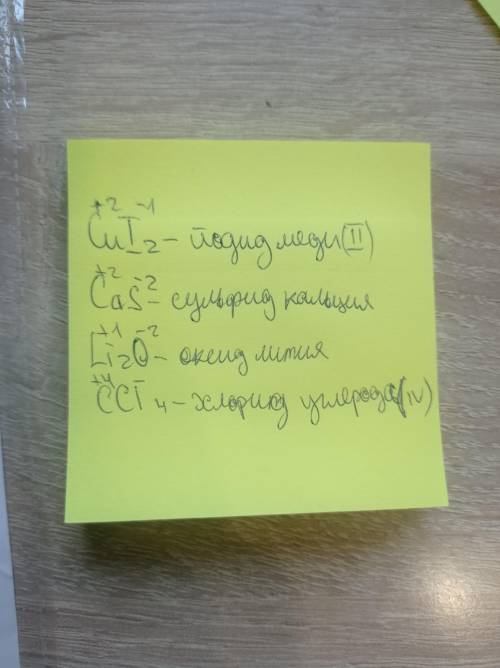 +2 -1
CuI2 - йодид меди (II)
+2 -2
CaS - сульфид кальция
+1 -2
Li2O - оксид лития
+4 -
CCl4 - хлорид углерода (IV)